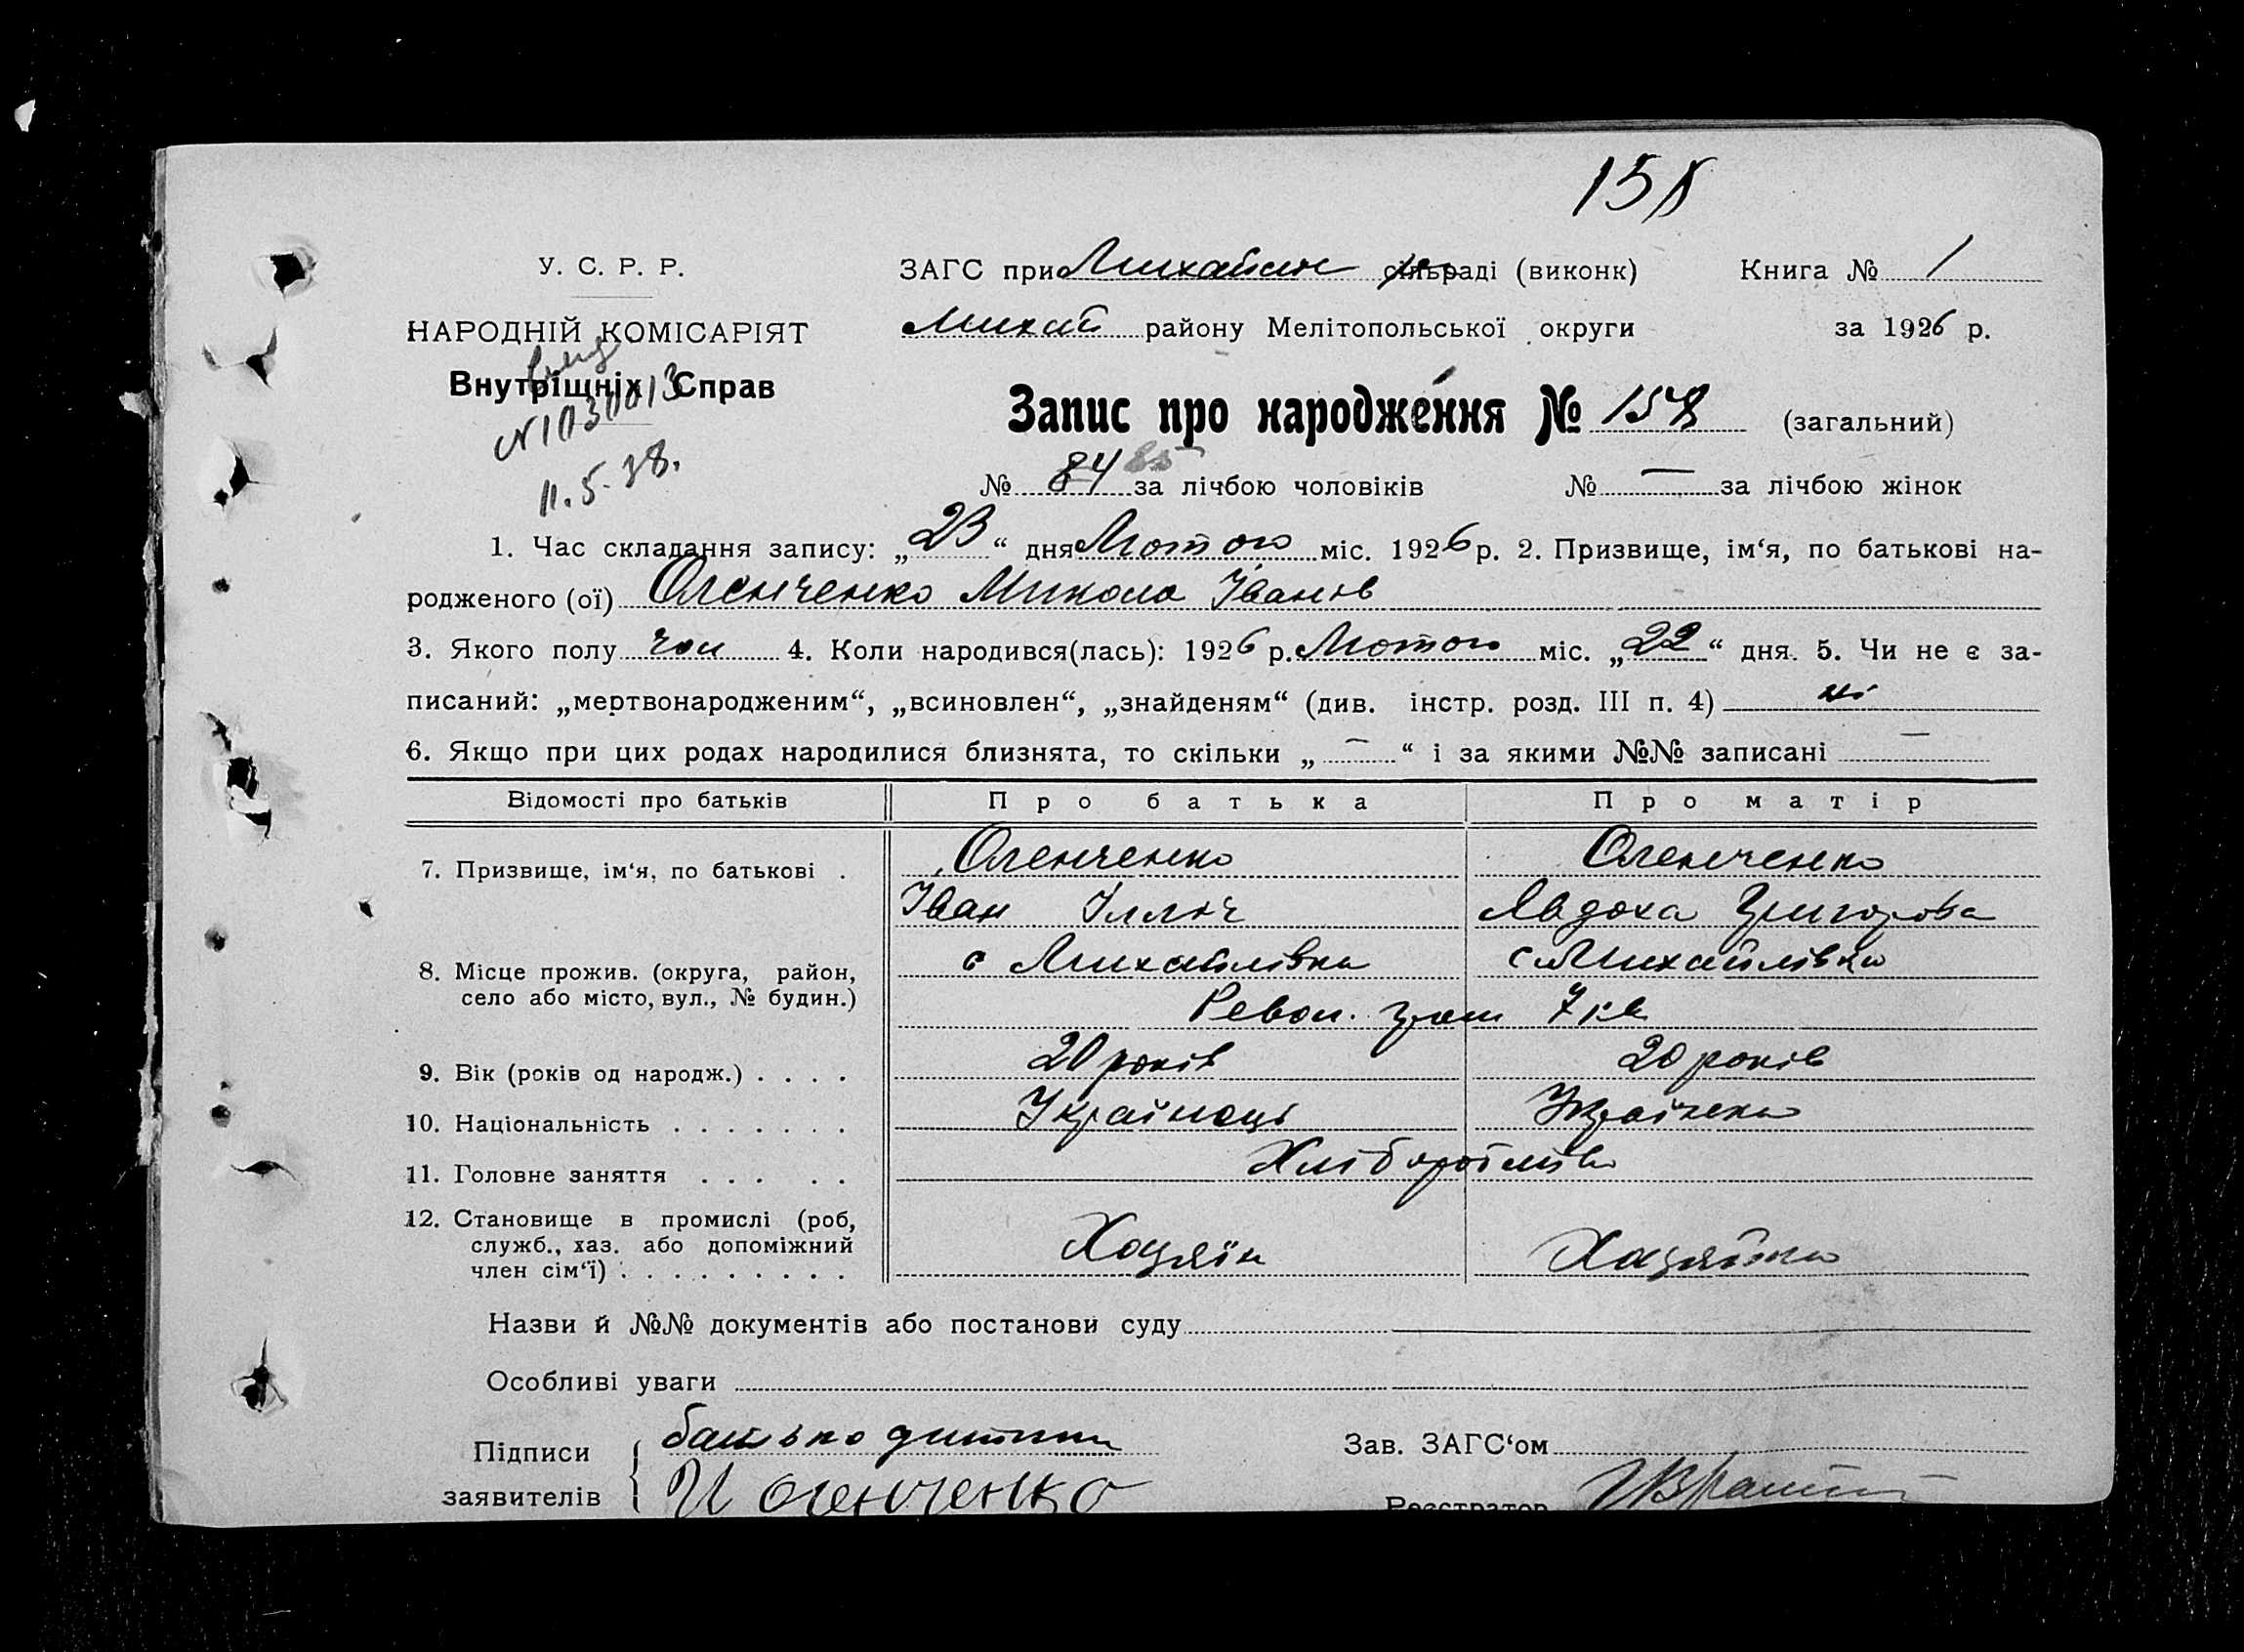 158
У. С. Р. Р.
НАРОДНІЙ КОМІСАРІЯТ
Внутрішніх Справ
№ 1030013
11. 5. 38.
ЗАГС при сільраді (виконк) Книга № 1
Михай району Мелітопольської округи за 1926 р.
Запис про народження № 158 (загальний)
№ 84 85 за лічбою чоловіків № — за лічбою жінок
1. Час складання запису: „23“ дня Лютого міс. 1926 р. 2. Призвище, ім‘я, по батькові на-
родженого (ої) Оленченко Микола Іванів
3. Якого полу чол 4. Коли народився(лась): 1926 р. Лютого міс. „22“ дня. 5. Чи не є за-
писаний: „мертвонародженим“, „всиновлен“, „знайденям“ (див. інстр. розд. III п. 4) ні
6. Якщо при цих родах народилися близнята, то скільки „—“ і за якими №№ записані —
Відомості про батьків Про батька Про матір
7. Призвище, ім‘я, по батькові . Оленченко Оленченко
Іван Ілліч Явдоха Григорова
8. Місце прожив. (округа, район, с Михайлівка с Михайлівка
село або місто, вул., № будин.)Револ. 7 кв
9. Вік (років од народж.) . . . . 20 років 20 років
10. Національність . . . . . . . Українець Українка
11. Головне заняття . . . . . Хліборобство
12. Становище в промислі (роб,
служб., хаз. або допоміжний Хазяїн Хазяйка
член сім‘ї) . . . . . . . . .
Назви й №№ документів або постанови суду
Особливі уваги
Підписи батько дитини Зав. ЗАГС‘ом
заявителів И Оленченко Реєстратор